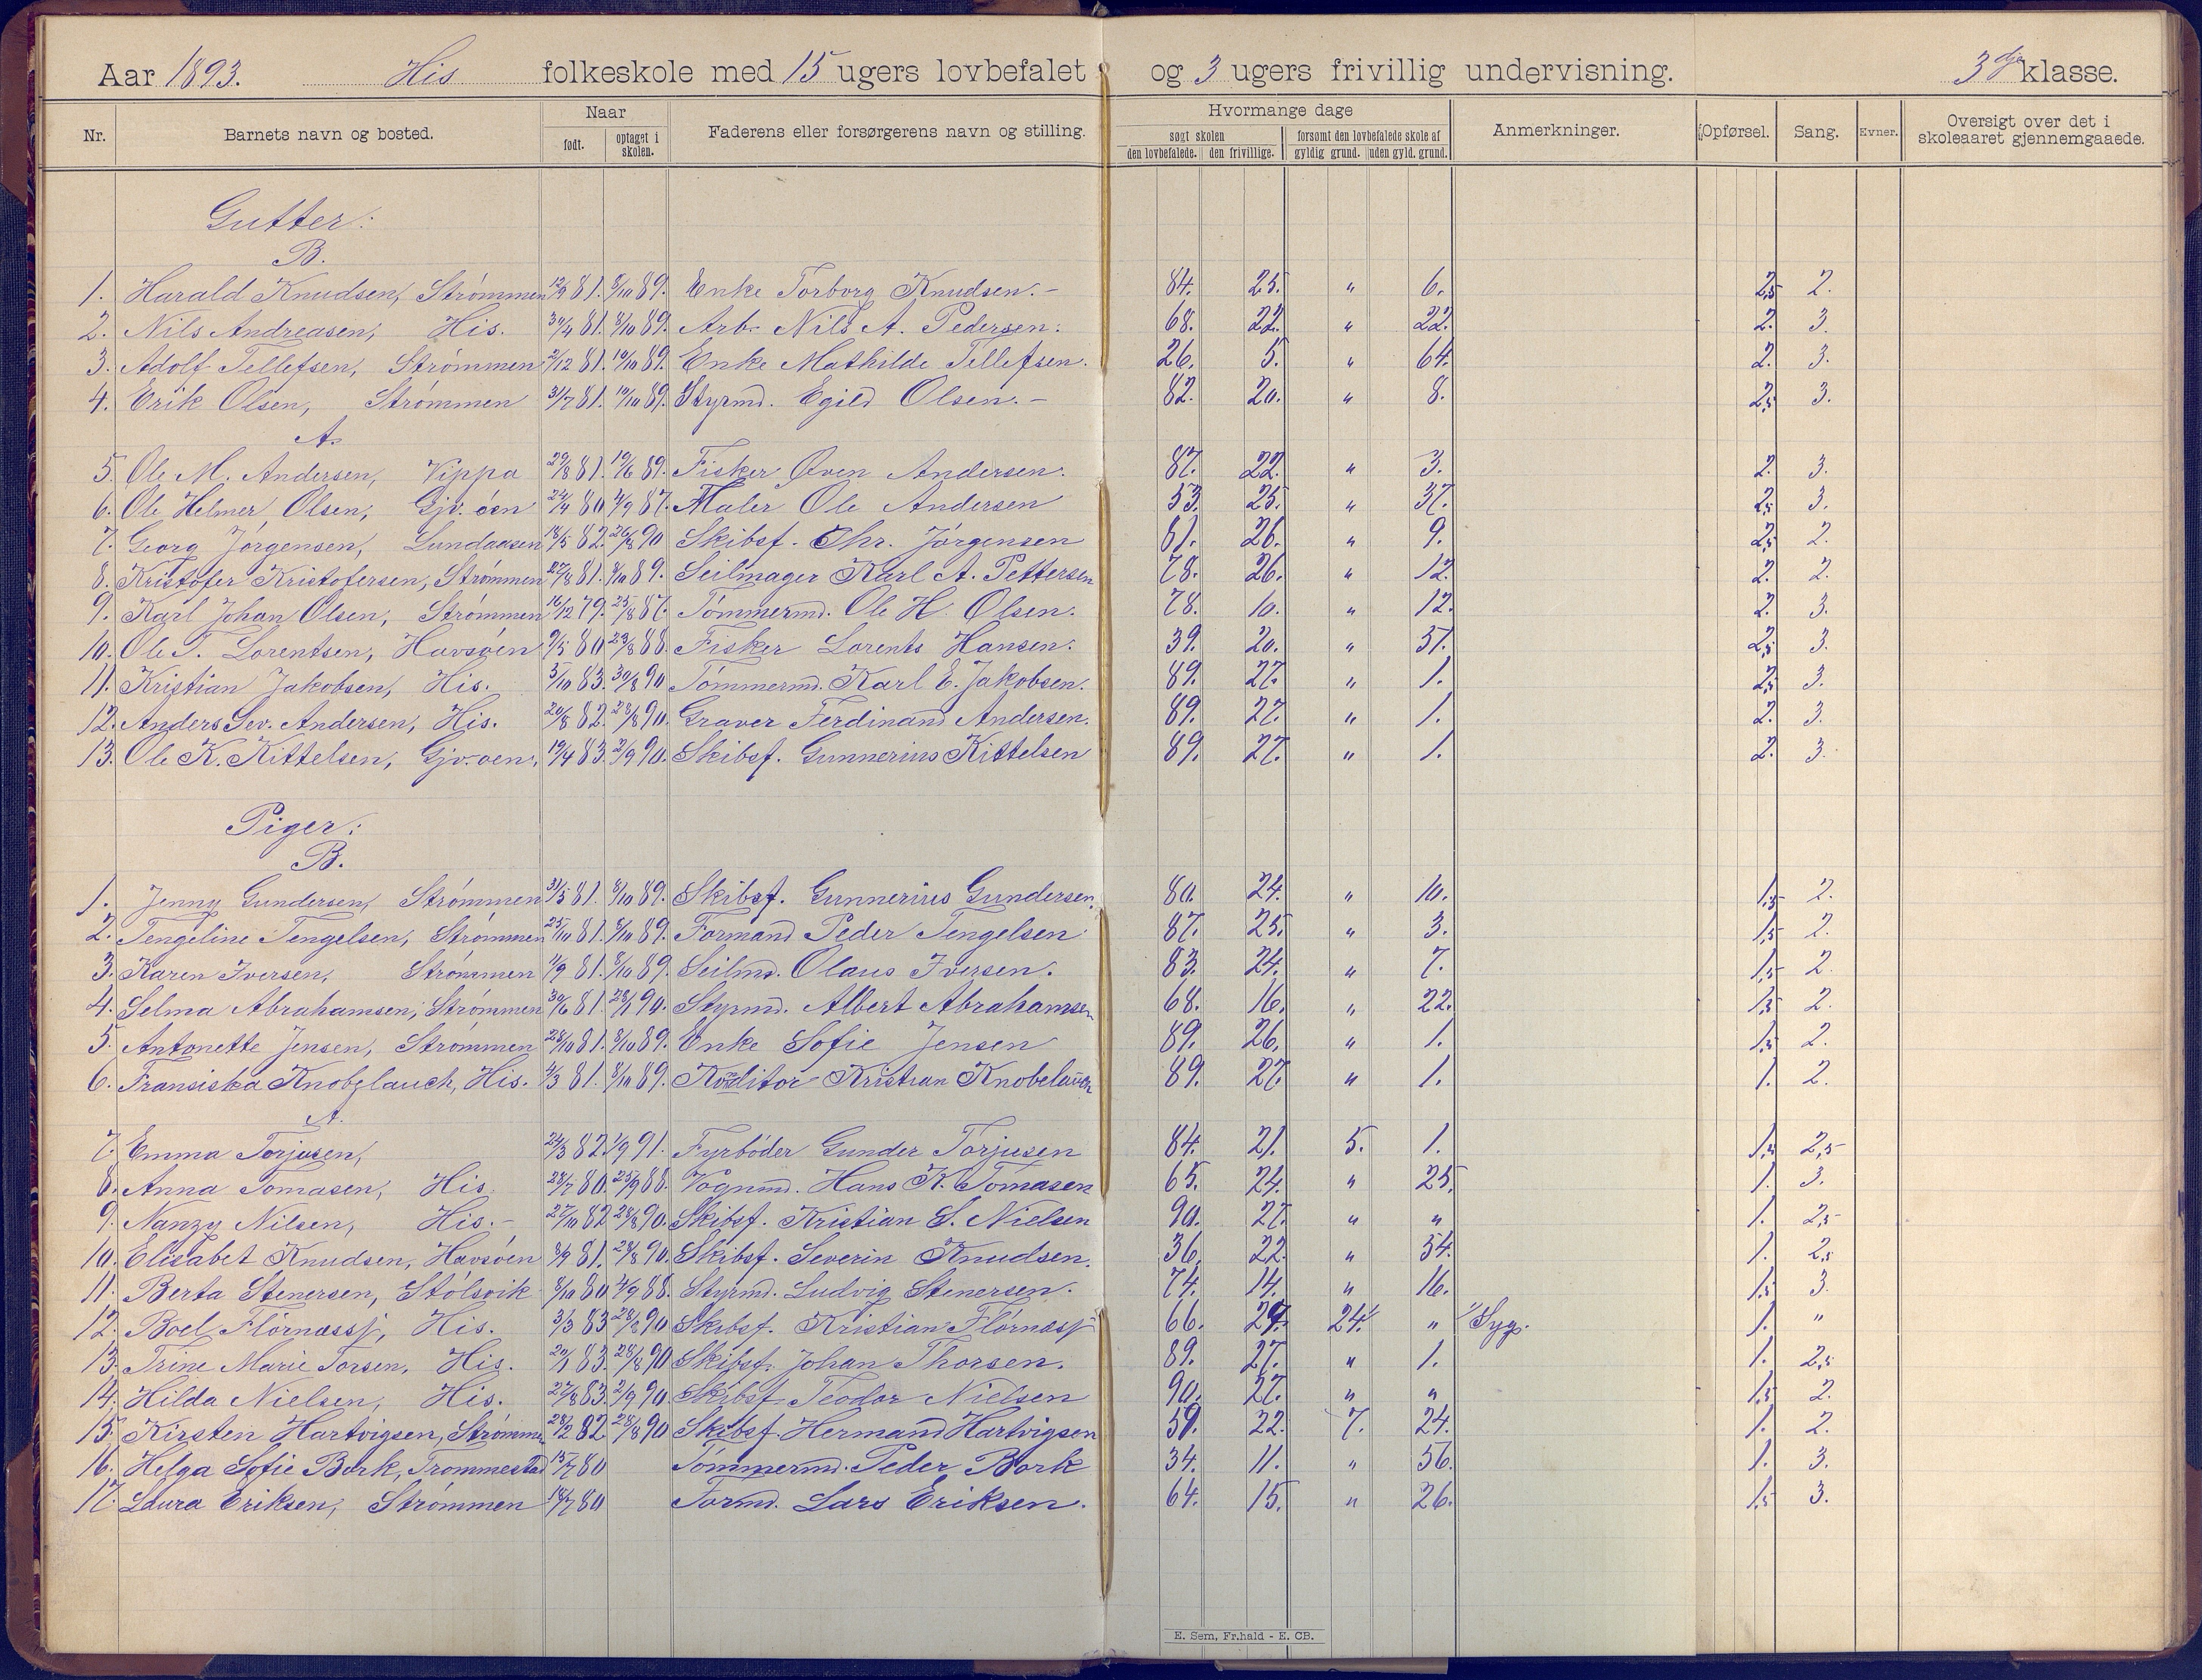 Aar 1893. His folkeskole med 15 ugers lovbefalet og 3 ugers frivillig undervisning. 3dje klasse.
Nr. Barnets navn og bosted. Naar født. optaget i skolen. Faderens eller forsørgerens navn og stilling. Hvormange dage søgt skolen den lovbefalede. den frivillige. forsømt den lovbefalede skole af gyldig grund. uden gyld. grund. Anmerkninger. Opførsel. Sang. Evner. Oversigt over det i skoleaaret gjennemgaaede.
Gutter:
B.
1. Harald Knudsen, Strømmen 12/9 81. 8/10 89. Enke Torborg Knudsen.- 84. 25. " 6. 2,5 2.
2. Nils Andreasen, His. 30/4 81. 8/10 89. Arb. Nils A. Pedersen. 68. 22. " 22. 2. 3.
3. Adolf Tellefsen, Strømmen 2/12 81. 10/10 89. Enke Mathilde Tellefsen. 26. 5. " 64. 2. 3.
4. Erik Olsen, Strømmen 31/7 81. 10/10 89. Styrmd. Egild Olsen.- 82. 20. " 8. 2,5 3.
A.
5. Ole M. Andersen, Vippa 29/8 81. 19/6 89. Fisker Øven Andersen. 87. 22. " 3. 2. 3.
6. Ole Helmer Olsen, Gjv. øen 24/4 80 4/9 87. Maler Ole Andersen 53. 25. " 37. 2,5 3.
7. Georg Jørgensen, Lundaasen 18/5 82. 26/8 90 Skibsf. Chr. Jørgensen 81. 26. " 9. 2,5 2.
8. Kristofer Kristofersen, Strømmen 27/8 81. 8/10 89. Seilmager Karl A. Pettersen 78. 26. " 12. 2. 2.
9. Karl Johan Olsen, Strømmen 16/12 79. 25/8 87. Tømmermd. Ole H. Olsen. 78. 10. " 12. 2. 3.
10. Ole T. Lorentsen, Havsøen 9/5 80 23/8 88. Fisker Lorents Hansen. 39. 20. " 51. 2,5 3.
11. Kristian Jakobsen, His. 5/10 83. 30/8 90 Tømmermd. Karl E. Jakobsen. 89. 27. " 1. 2,5 3.
12. Anders Sev. Andersen, His. 20/8 82. 28/8 90. Graver Ferdinand Andersen. 89. 27. " 1. 2. 3.
13. Ole K. Kittelsen, Gjv-øen, 19/4 83. 2/9 90. Skibsf. Gunnerius Kittelsen 89. 27. " 1. 2. 3.
Piger:
B.
1. Jenny Gundersen, Strømmen 31/5 81. 8/10 89. Skibsf. Gunnerius Gundersen. 80. 24. " 10. 1,5 2.
2. Tengeline Tengelsen, Strømmen 25/10 81. 8/10 89. Formand Peder Tengelsen 87. 25. " 3. 1,5 2.
3. Karen Iversen, Strømmen 11/9 81. 8/10 89. Seilmd. Olaus Iversen. 83. 24. " 7. 1,5 2.
4. Selma Abrahamsen, Strømmen 30/6 81. 28/1 90. Styrmd. Albert Abrahamsen 68. 16. " 22. 1,5 2.
5. Antonette Jensen, Strømmen 28/10 81. 8/10 89. Enke Sofie Jensen 89. 26. " 1. 1,5 2.
6. Fransiska Knobelauch, His. 4/3 81. 8/10 89. Konditor Kristian Knobelauch 89. 27. " 1. 1. 2.
A.
7. Emma Torjusen, 24/3 82. 1/9 91. Fyrbøder Gunder Torjusen 84. 21. 5. 1. 1,5 2,5
8. Anna Tomasen, His. 28/7 80. 25/9 88. Vognmd. Hans K. Tomasen 65. 24. " 25. 1. 3.
9. Nanzy Nilsen, His.- 27/10 82 28/8 90. Skibsf. Kristian S. Nielsen 90. 27. " " 1. 2,5
10. Elisabet Knudsen, Havsøen 8/9 81. 28/8 90. Skibsf. Severin Knudsen. 36. 22. " 54. 1. 2,5
11. Berta Stenersen, Stølsvik 8/10 80 4/9 88. Styrmd. Ludvig Stenersen. 74. 14. " 16. 1,5 3.
12. Boel Flørnæssj, His. 3/3 83 28/8 90 Skibsf. Kristian Flørnæssj 66. 27. 24.1/ " 1/ Syg. 1. "
13. Trine Marie Torsen, His. 20/1 83. 28/8 90 Skibsf. Johan Thorsen. 89. 27. " 1. 1. 2,5
14. Hilda Nielsen, His. 27/8 83. 2/9 90. Skibsf. Teodor Nielsen 90. 27. " " 1,5 2.
15. Kirsten Hartvigsen, Strømmen 28/2 82. 28/8 90 Skibsf. Hermand Hartvigsen 59. 22. 7. 24. 1. 2.
16. Helga Sofie Bork, Trommestad 13/7 80 Tømmermd. Peder Bork 34. 11. " 56. 1. 3.
17. Laura Eriksen, Strømmen 18/7 80 Formd. Lars Eriksen. 64. 15. " 26. 1,5 3.
E. Sem, Fr.hald - E. CB.